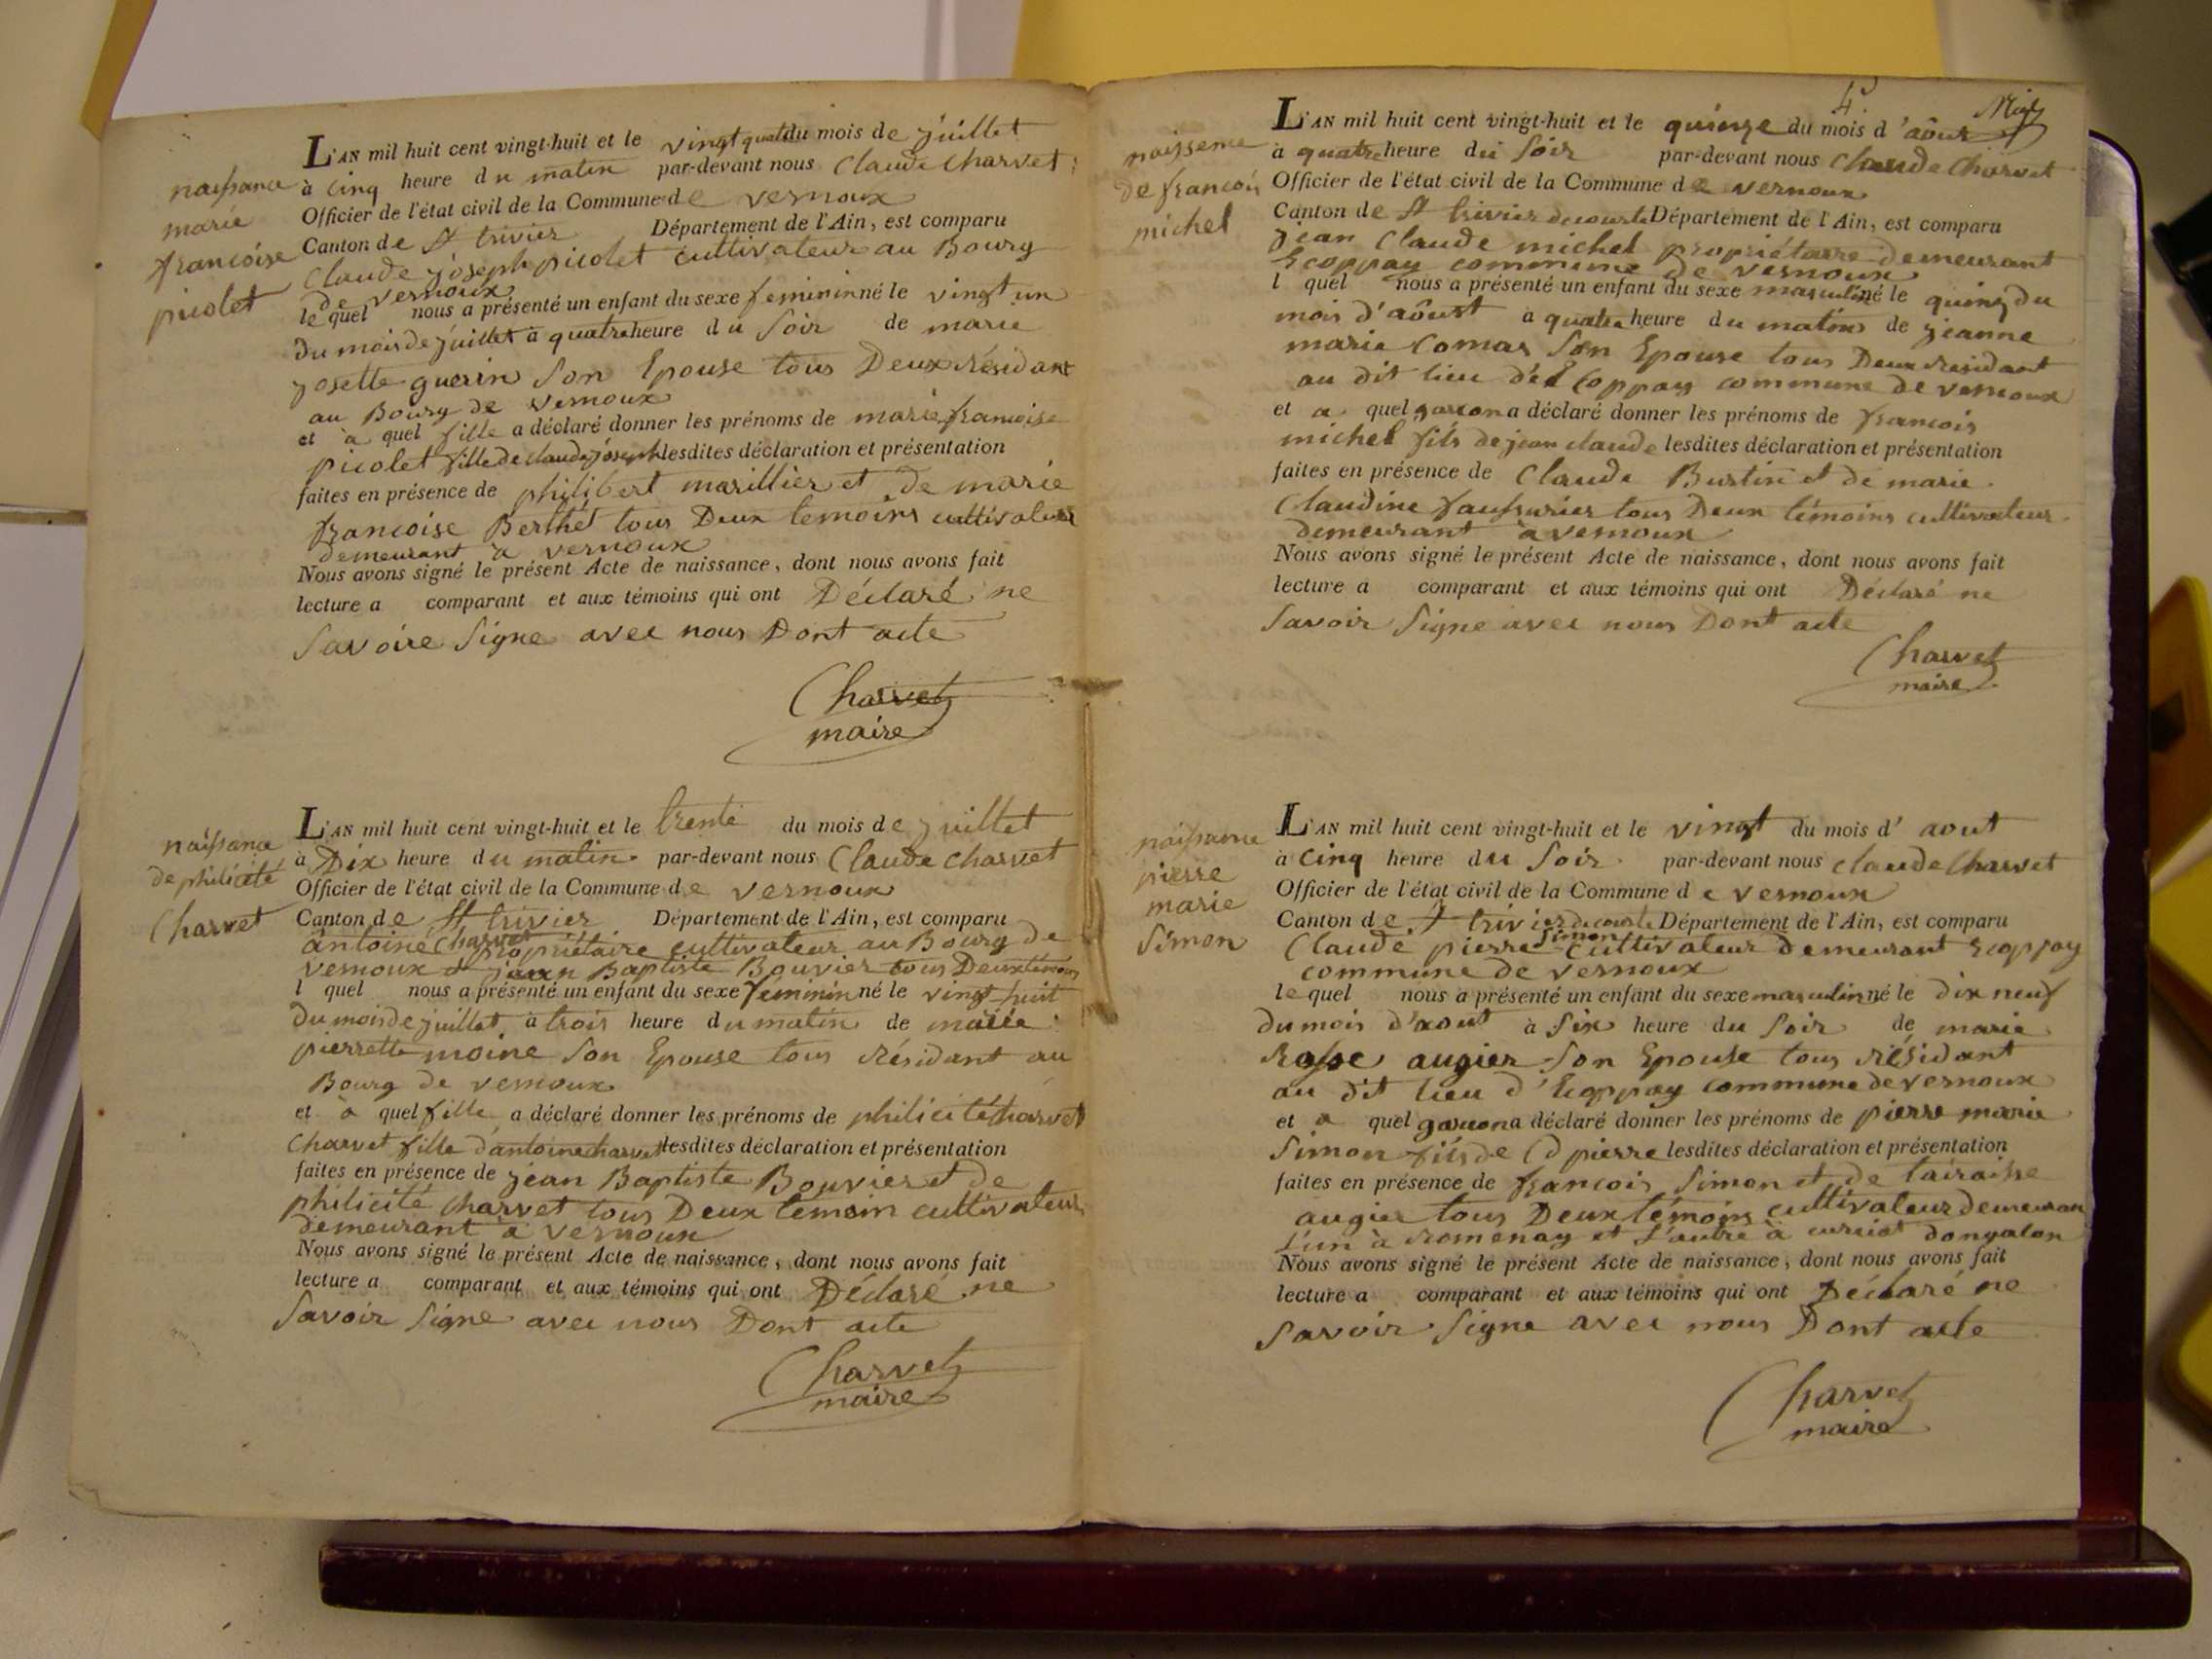 naissance
marie
francoise
picolet
L'AN mil huit cent vingt-huit et le vingt quatdu mois de juillet
à cinq heure du matin par-devant nous Claude charvet
Officier de l'état civil de la Commune de vernoux
Canton de St trivier Département de l'Ain, est comparu
Claude joseph picolet cultivateur au Bourg
de vernoux
le quel nous a présenté un enfant du sexe femininné le vingt un
du mois de juillet à quatre heure du soir de marie
josette guerin son Epouse tous Deux résidant
au Bourg de vernoux
et à quel fille a déclaré donner les prénoms de marie francoise
picolet fille de claude joseph lesdites déclaration et présentation
faites en présence de philibert marillier et de marie
francoise Berthet tous Deux temoins cultivateur
demeurant à vernoux
Nous avons signé le présent Acte de naissance, dont nous avons fait
lecture a comparant et aux témoins qui ont Déclaré ne
savoire signe avec nous Dont acte
Charvet
maire
naissance
de philicité
Charvet
L'AN mil huit cent vingt-huit et le trente du mois de juillet
à Dix heure du matin par-devant nous Claude charvet
Officier de l'état civil de la Commune de vernoux
Canton de St trivier Département de l'Ain, est comparu
antoine charvet propriétaire cultivateur au Bourg de
vernoux et jean Baptiste Bouvier tous Deux témoins
l quel nous a présenté un enfant du sexe féminin né le vingt huit
du mois de juillet à trois heure du matin de marie
pierrette moine son Epouse tous résidant au
Bourg de vernoux
et à quel fille a déclaré donner les prénoms de philicité charvet
charvet fille d'antoine charvet lesdites déclaration et présentation
faites en présence de jean Baptiste Bouvier et de
philicité charvet tous Deux temoin cultivateur
demeurant à vernoux
Nous avons signé le présent Acte de naissance, dont nous avons fait
lecture a comparant et aux témoins qui ont Déclaré ne
savoir signe avec nous Dont acte
Charvet
maire
4
naissence
de francois
michel
L'AN mil huit cent vingt-huit et le quinze du mois d'aôust
à quatre heure du soir par-devant nous Claude Charvet
Officier de l'état civil de la Commune de vernoux
Canton de St trivier decourte Département de l'Ain, est comparu
jean Claude michel propriétaire demeurant
Ecoppay commune de vernoux
l quel nous a présenté un enfant du sexe masculin né le quinz du
mois d'aôust à quatre heure du matin de jeanne
marie Comas son Epouse tous Deux residant
au dit lieu d'Ecoppay commune de vernoux
et a quel garcon a déclaré donner les prénoms de francois
michel fils de jean claude lesdites déclaration et présentation
faites en présence de Claude Burtin et de marie
Claudine tous Deux témoins cultivateur
demeurant à vernoux
Nous avons signé le présent Acte de naissance, dont nous avons fait
lecture a comparant et aux témoins qui ont Déclaré ne
savoir signe avec nous Dont acte
Charvet
maire
naissance
pierre
marie
simon
L'AN mil huit cent vingt-huit et le vingt du mois d' aout
à cinq heure du soir par-devant nous claude Charvet
Officier de l'état civil de la Commune de vernoux
Canton de St trivier decourte Département de l'Ain, est comparu
Claude pierre simon cultivateur demeurant Ecoppay
commune de vernoux
le quel nous a présenté un enfant du sexe masculin né le dix neuf
du mois d'aout à six heure du soir de marie
augier son Epouse tous résidant
au dit lieu d'Ecoppay commune de vernoux
et a quel garcon a déclaré donner les prénoms de pierre marie
simon fils de Cd pierre lesdites déclaration et présentation
faites en présence de francois simon et de tairaisse
augier tous Deux témoins cultivateur demeuran
L'un à romenay et L'autre à curciat dongalon
Nous avons signé le présent Acte de naissance, dont nous avons fait
lecture a comparant et aux témoins qui ont Déclaré ne
savoir signe avec nous Dont acte
Charvet
maire